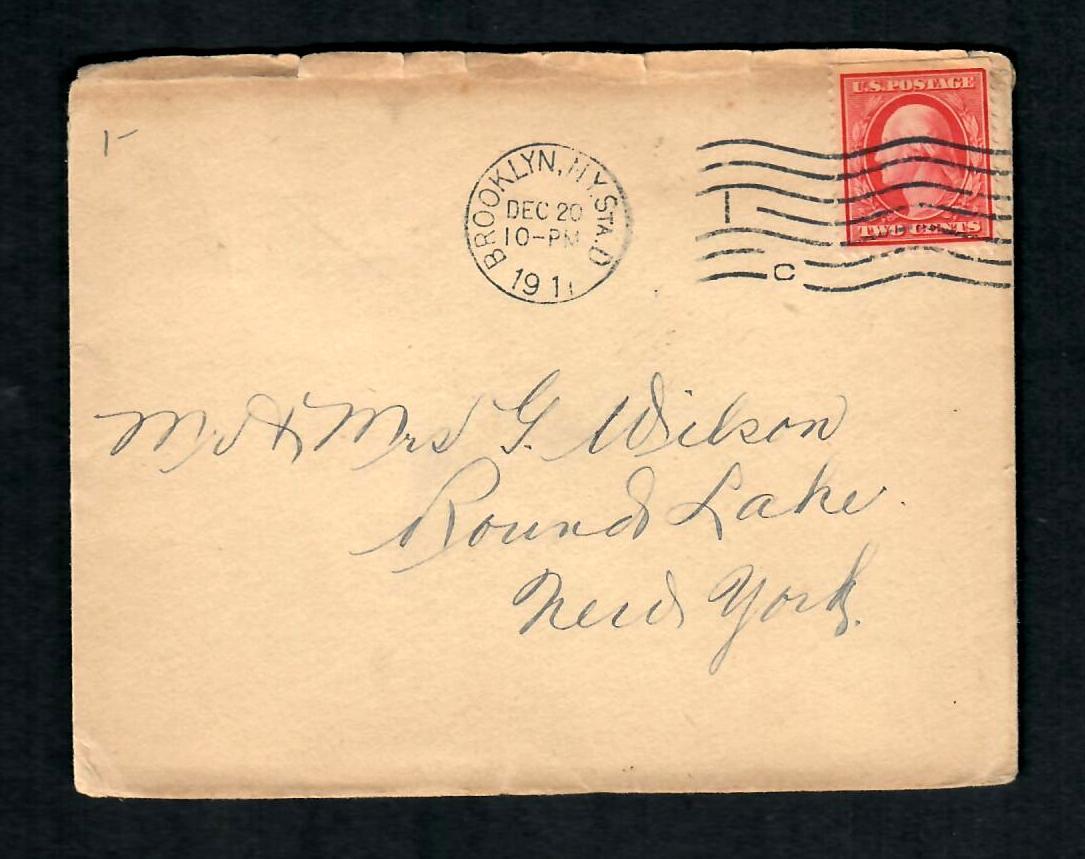 U.S.POSTAGE
TWO CENTS
BROOKLYN, N.Y. STA. D
DEC 20
10-PM
1911
1
C
Mr & Mrs G. Wilson
Round Lake.
New York.